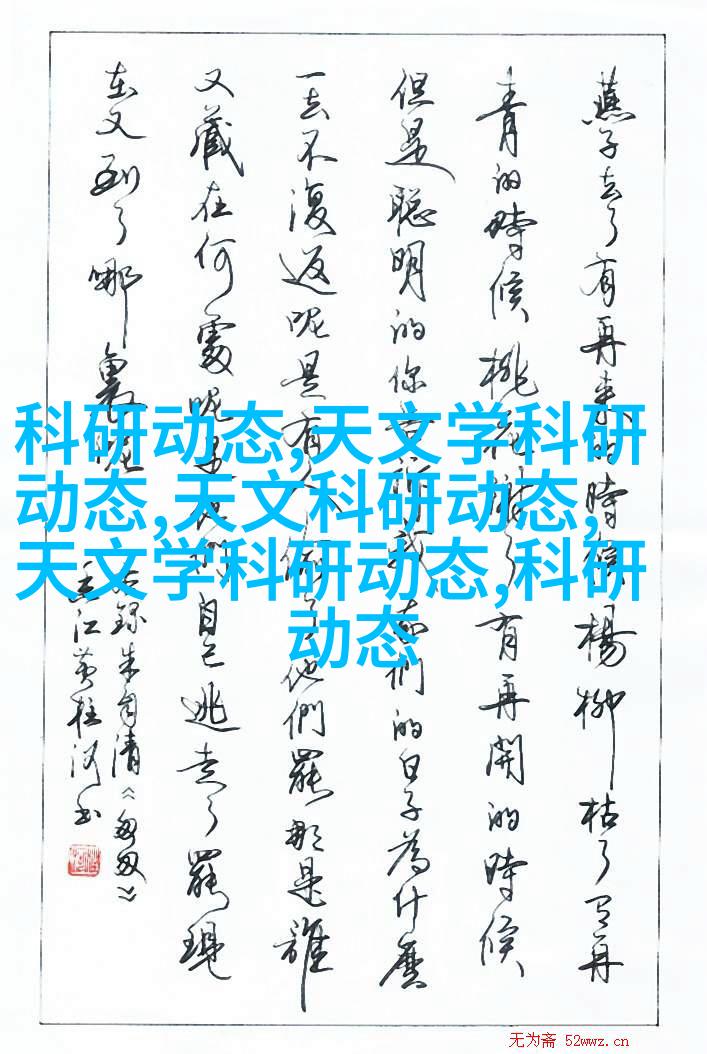 燕子去了有再来的時候楊柳枯了有再
青的時候桃花謝了有再開的時候
但是聰明的你告訴我我們的日子為什麼
一去不復返呢是有人偷了他們罷那是誰
又藏在何處呢是他們自己逃走了罷現
在又到了哪裏呢
朱自清《匆匆》
江黄柱河书
科研动态,天文学科研
动态,天文科研动态,
天文学科研动态,科研
动态
无为斋 52wwz.cn